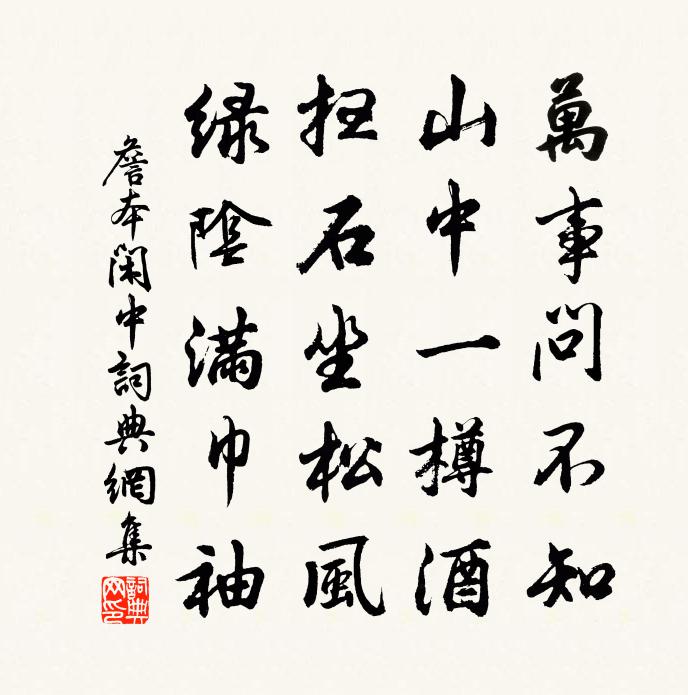 萬事問不知
山中一樽酒
掃石坐松風
緑陰滿巾袖
詹本閑中詞典網集
詞典網印